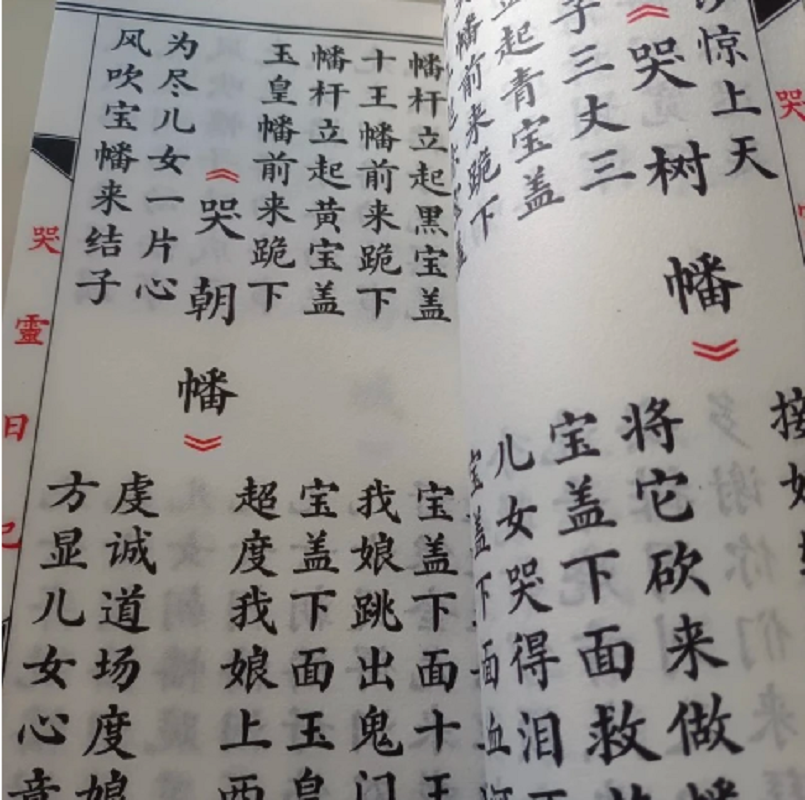 哭
惊上天
接
《哭树幡》
子三丈三
将它砍来做幡
起青宝盖
宝盖下面救
幡前来跪下
儿女哭得泪
盖
宝盖下面血
幡杆立起黑宝盖
宝盖下面十王
十王幡前来跪下
我娘跳出鬼门
幡杆立起黄宝盖
宝盖下面玉皇
玉皇幡前来跪下
超度我娘上西
《哭朝幡》
为尽儿女一片心
虔诚道场度娘
风吹宝幡来结子
方显儿女心意
哭靈日